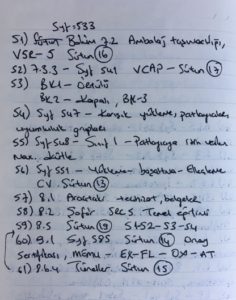 Syf: 533
51) Bölüm 7.2 Ambalaj taşımacılığı,
VSR-5 Sütun 16
52) 7.3.3 - Syf 541 VCAP - Sütun 17
53) BK1 - Örtülü
BK2 - Kapalı, BK-3
54) Syf 547 - Karışık yükleme, patlayıcıların
uyumluluk grupları
55) Syf 548 - Sınıf 1 - Patlayıcıya
Net kütle
56) Syf 551 - Yükleme - boşaltma - Elleçleme
CV Sütun 18
57) 8.1 Araçtaki teçhizat, belgeler
58) 8.2 Şoför SRC5 Tünel eğitimi
59) 8.5 Sütun 19 S1+S2-S3-S4
60) 9.1 Syf 585 Sütun 14 Onay
Sertifikası, EX-FL-OX-AT
61) 8.6.4 Tüneller Sütun 15